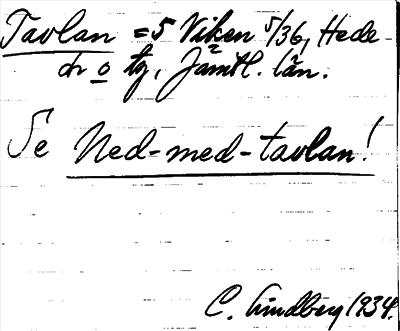 Tavlan = 5 Viken 5/36, Hede
sn o tg, Jämtl. län.
Se Ned-med-tavlan!
C. Lindberg 1934.